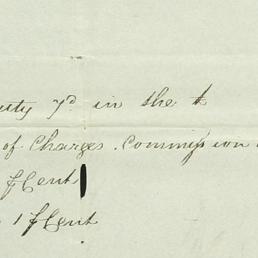 7d in the
of Charges. Commission
⅌ Cent
1 ⅌ Cent